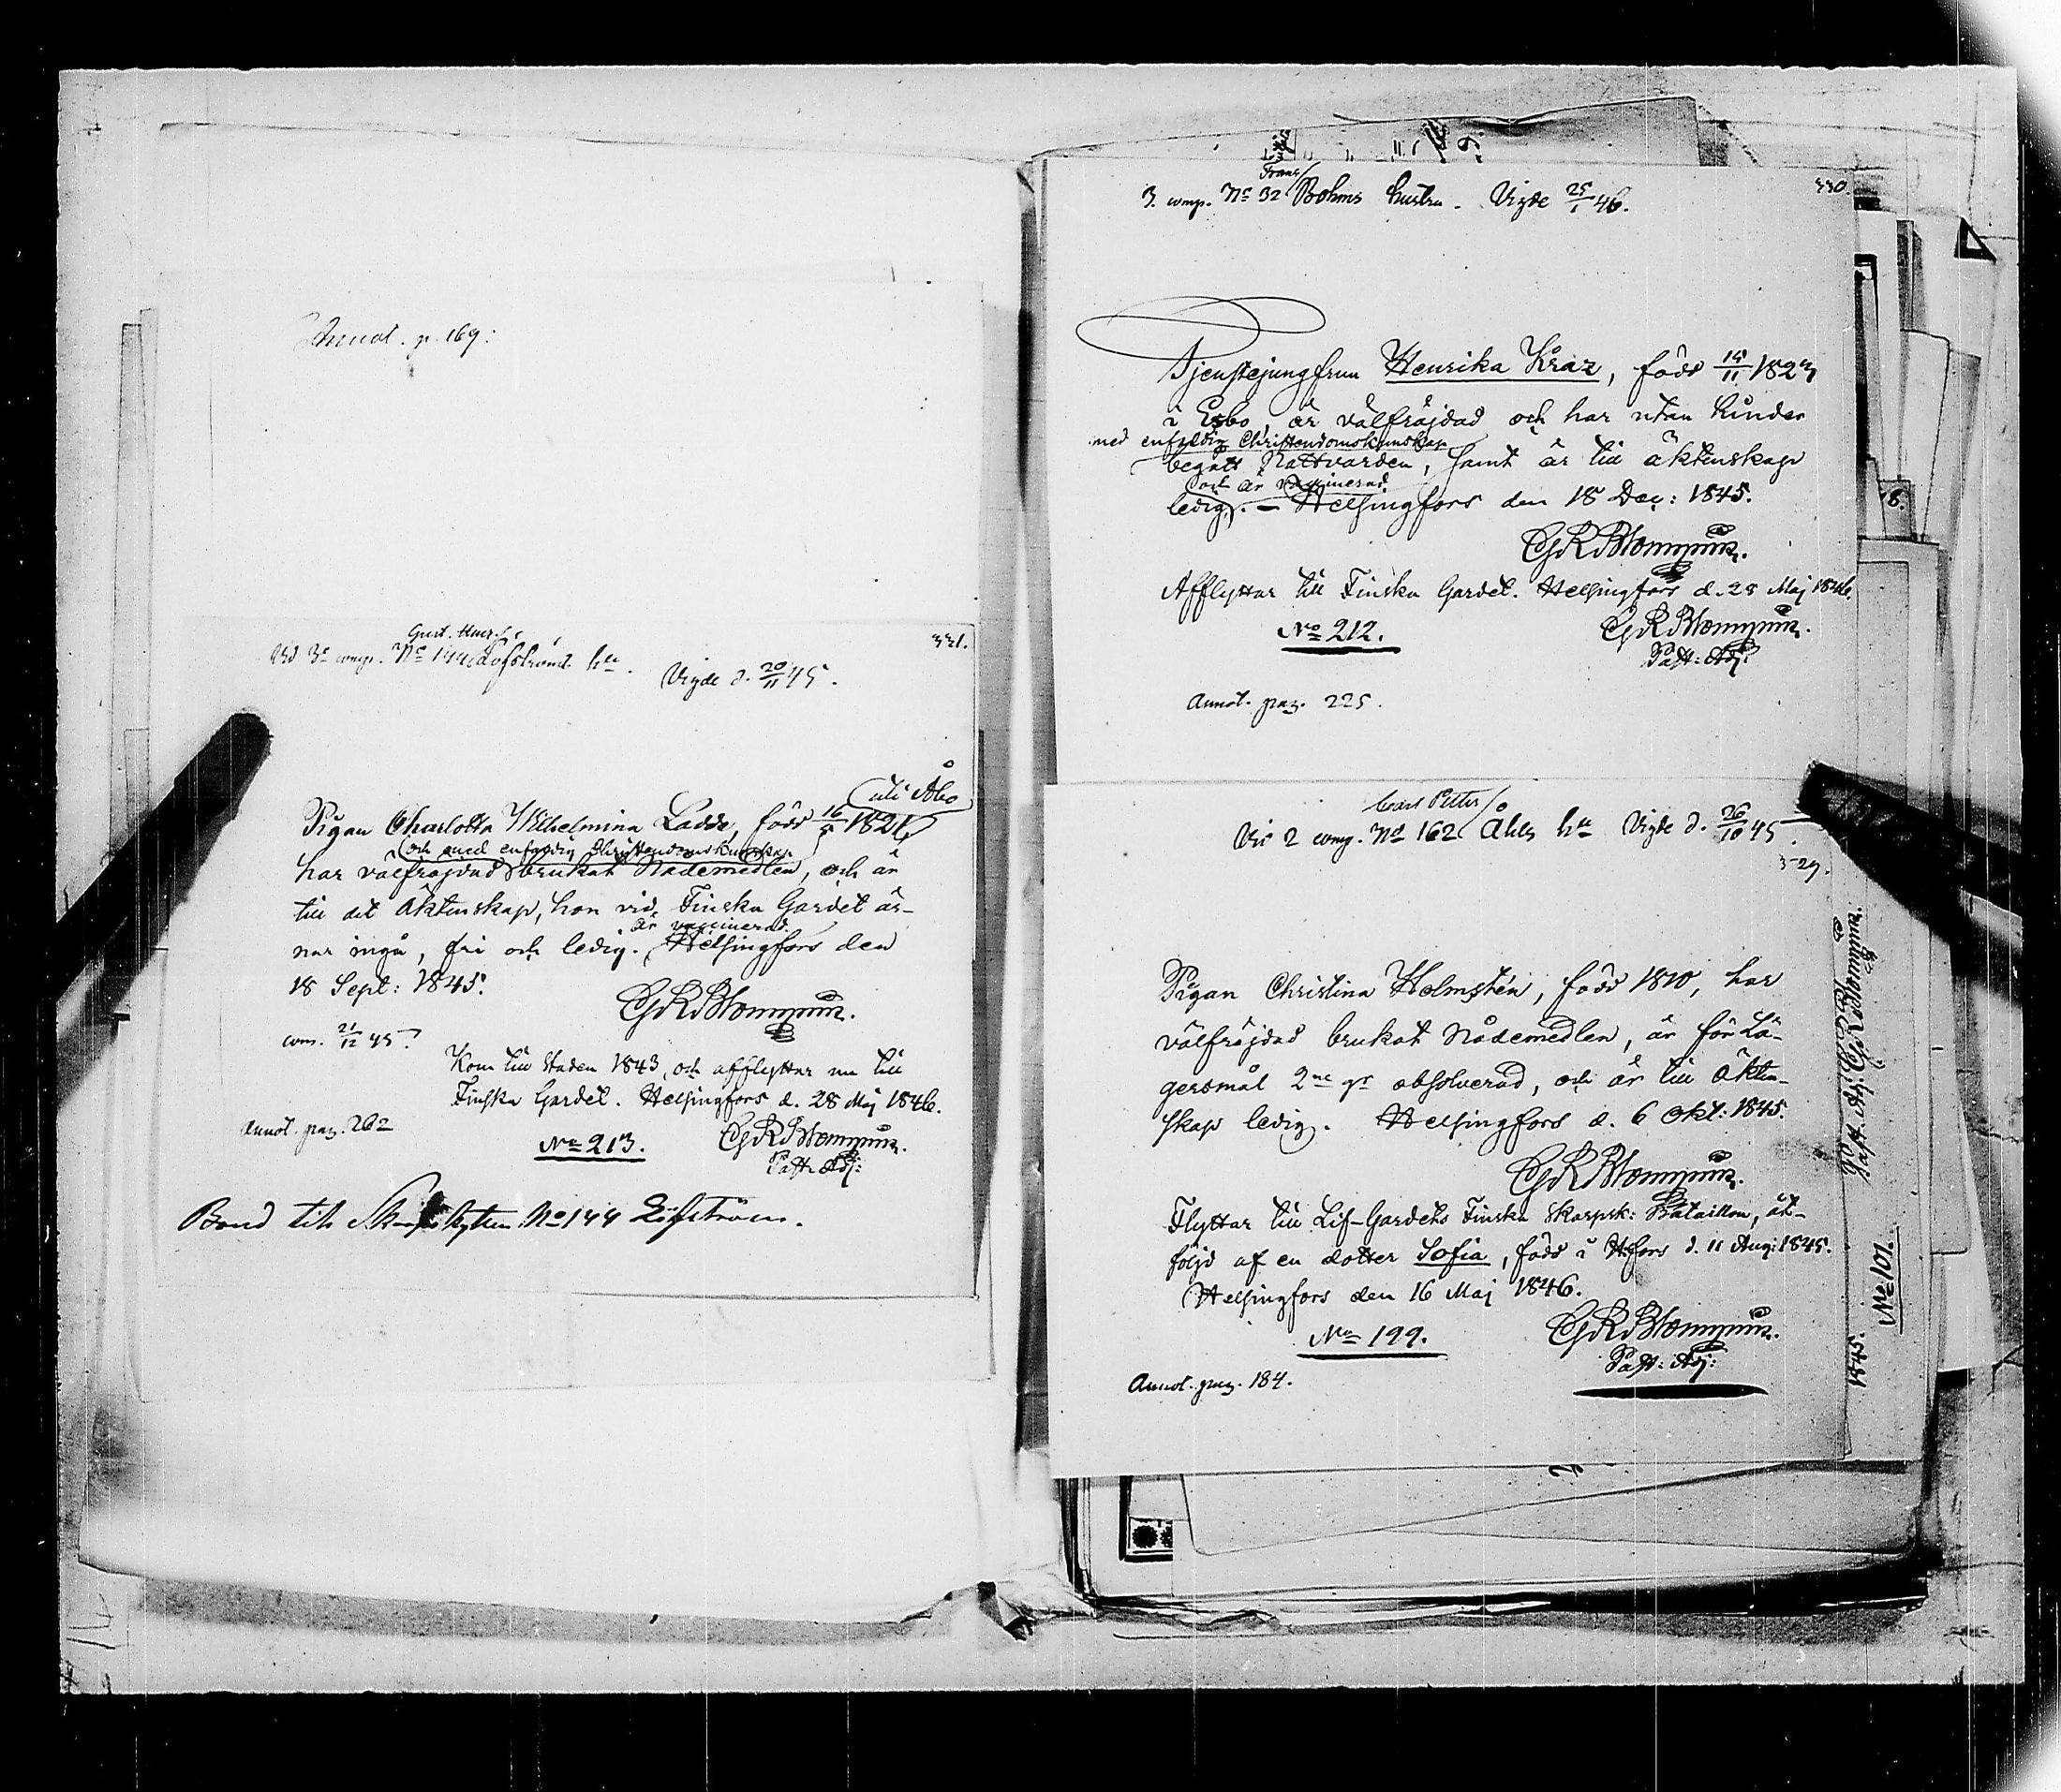 Annot. p. 169:
331.
Gust. Henr.
Vid 3e comp. No 144 Löfströms hu. Vigde d. 20/11 45.
uti Åbo
Pigan Charlotta Wilhelmina Ladde, född 16/5 1821,
och med enfaldig Christendomskunskap
har välfräjdad brukat Nådemedlen, och är
till det Äktenskap, hon vid Finska Gardet är-
är vaccinerad.
nar ingå, fri och ledig. Helsingfors den
18 Sept: 1845.
com. 21/12 45.
Kom till staden 1843, och afflyttar nu till
Finska Gardet. Helsingfors d. 28 Maj 1846.
Annot. pag. 262
No 213.
Past. Adj:
No 144 Löfström.
330.
Frans
3. comp. No 32 Bohms hustru. Vigde 25/1 46.
Tjenstejungfrun Henrika Kraz, född 15/11 1823
i Esbo, är välfräjdad och har utan hinder
med enfaldig Christendomskunskap
begått Nattvarden, samt är till äktenskap
och är vaccinerad
ledig. – Helsingfors den 18 Dec: 1845.
Afflyttar till Finska Gardet. Helsingfors d. 28 Maj 1846.
No 212.
Past: Adj:
Annot. pag. 225.
Carl Petter
Vid 2 comp. No 162 Ahls hu Vigde d. 26/10 45.
329.
Pigan Christina Holmstén, född 1810, har
välfräjdad brukat Nådemedlen, är för Lä-
gersmål 2ne gr absolverad, och är till äkten-
skap ledig. Helsingfors d. 6 Okt: 1845.
Flyttar till Lif-Gardets Finska Skarpsk: Bataillon, åt-
följd af en dotter Sofia, född i H:fors d. 11 Aug: 1845.
Helsingfors den 16 Maj 1846.
No 199.
Past: Adj:
Annot. pag. 184.
Past. Adj:
No 101.
1845.